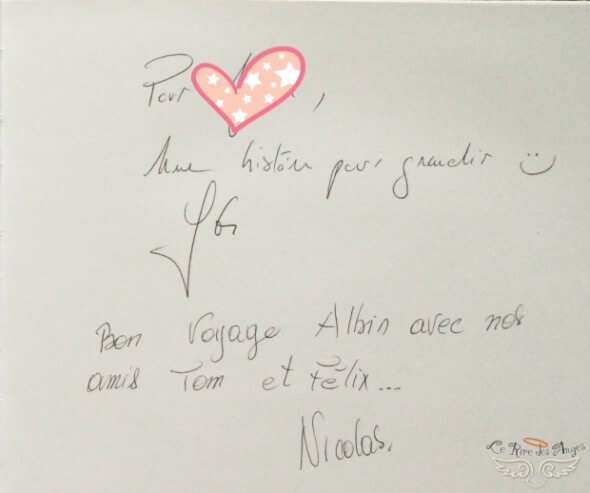 Pour ,
Une histoire pour grandir :)
Bon Voyage Albin avec nos
amis Tom et Félix...
Nicolas.
Le Rire des Anges